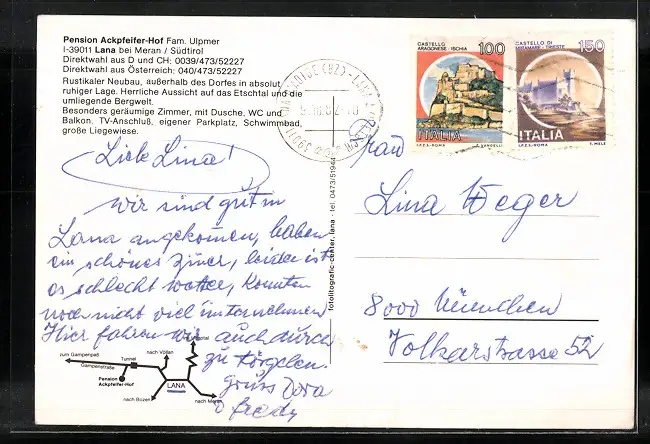 Pension Ackpfeifer-Hof Fam. Ulpmer
I-39011 Lana bei Meran / Südtirol
Direktwahl aus D und CH: 0039/473/52227
Direktwahl aus Österreich: 040/473/52227
Rustikaler Neubau, außerhalb des Dorfes in absolut
ruhiger Lage. Herrliche Aussicht auf das Etschtal und die
umliegende Bergwelt.
Besonders geräumige Zimmer, mit Dusche, WC und
Balkon. TV-Anschluß, eigener Parkplatz, Schwimmbad,
große Liegewiese.
Liebe Lina!
Wir sind gut in
Lana angekommen, haben
ein schönes Zimer, leider ist
es schlecht wetter, konnten
noch nicht viel unternehmen
Hier fahren wir auch durch
zu Törgelen.
Gruss Dora
Fredy
zum Gampenpaß
Gampenstraße
Tunnel
nach Völlan
Pension
Ackpfeifer-Hof
LANA
nach Bozen
nach Meran
fotolitografic-center, lana - tel. 0473/51944
CASTELLO
ARAGONESE - ISCHIA
100
ITALIA
I.P.Z.S.-ROMA
E. VANGELLI
CASTELLO DI
MIRAMARE - TRIESTE
150
ITALIA
I.P.Z.S.-ROMA
F. MELE
39011
Frau
Lina Weger
8000 München
Volkarstrasse 52